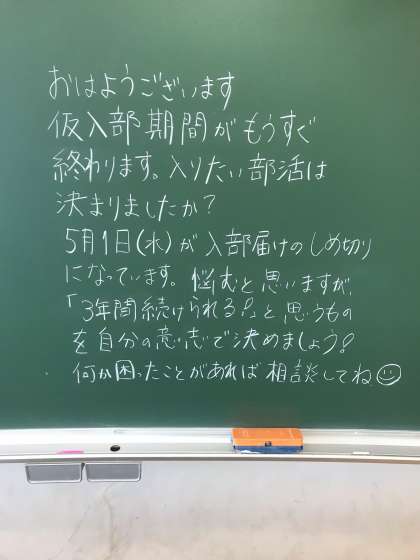 おはようございます
仮入部期間がもうすぐ
終わります。入りたい部活は
決まりましたか？
5月1日(水)が入部届けのしめ切り
になっています。悩むと思いますが、
「3年間続けられる！」と思うもの
を自分の意志で決めましょう！
何か困ったことがあれば相談してね☺